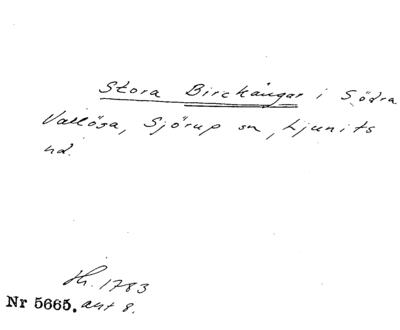 Stora Birckångar i Södra
Vallösa, Sjörup sn, Ljunits
hd.
Hr. 1783
Nr 5665. akt 8.